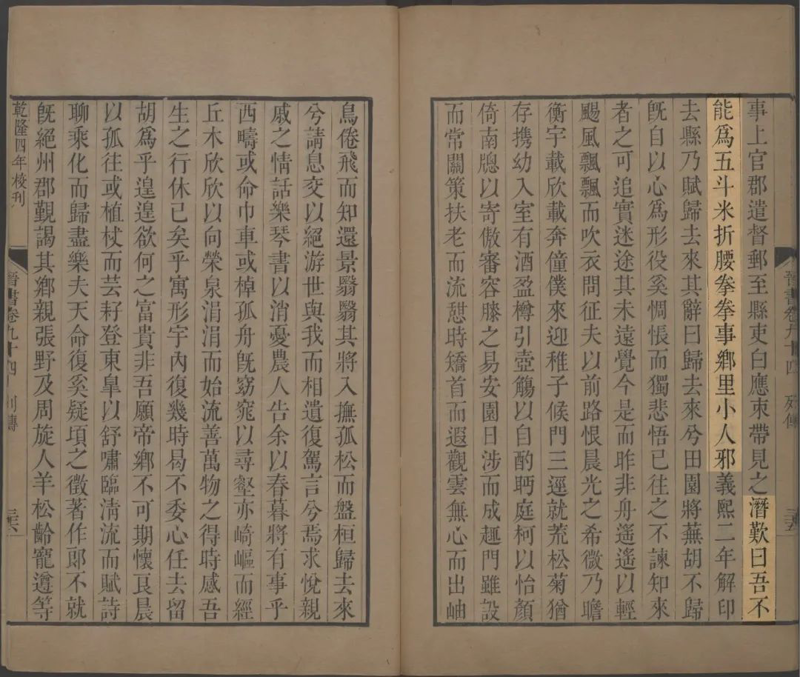 事上官郡遣督郵至縣吏白應束帶見之潛歎曰吾不
能爲五斗米折腰拳拳事鄉里小人邪義熙二年解印
去縣乃賦歸去來其辭曰歸去來兮田園將蕪胡不歸
旣自以心爲形役奚惆悵而獨悲悟已往之不諫知來
者之可追實迷途其未遠覺今是而昨非舟遙遙以輕
颺風飄飄而吹衣問征夫以前路恨晨光之希微乃瞻
衡宇載欣載奔僮僕來迎稚子候門三逕就荒松菊猶
存携幼入室有酒盈樽引壺觴以自酌眄庭柯以怡顏
倚南牎以寄傲審容膝之易安園日涉而成趣門雖設
而常關策扶老而流憇時矯首而遐觀雲無心而出岫
鳥倦飛而知還景翳翳其將入撫孤松而盤桓歸去來
兮請息交以絕游世與我而相遺復駕言兮焉求悅親
戚之情話樂琴書以消憂農人告余以春暮將有事乎
西疇或命巾車或棹孤舟旣窈窕以尋壑亦崎嶇而經
丘木欣欣以向榮泉涓涓而始流善萬物之得時感吾
生之行休已矣乎寓形宇內復幾時曷不委心任去留
胡爲乎遑遑欲何之富貴非吾願帝鄉不可期懷良晨
以孤往或植杖而芸耔登東皐以舒嘯臨淸流而賦詩
聊乘化而歸盡樂夫天命復奚疑頃之徵著作郞不就
旣絕州郡覲謁其鄉親張野及周旋人羊松齡寵遵等
乾隆四年校刊
晉書卷九十四 列傳